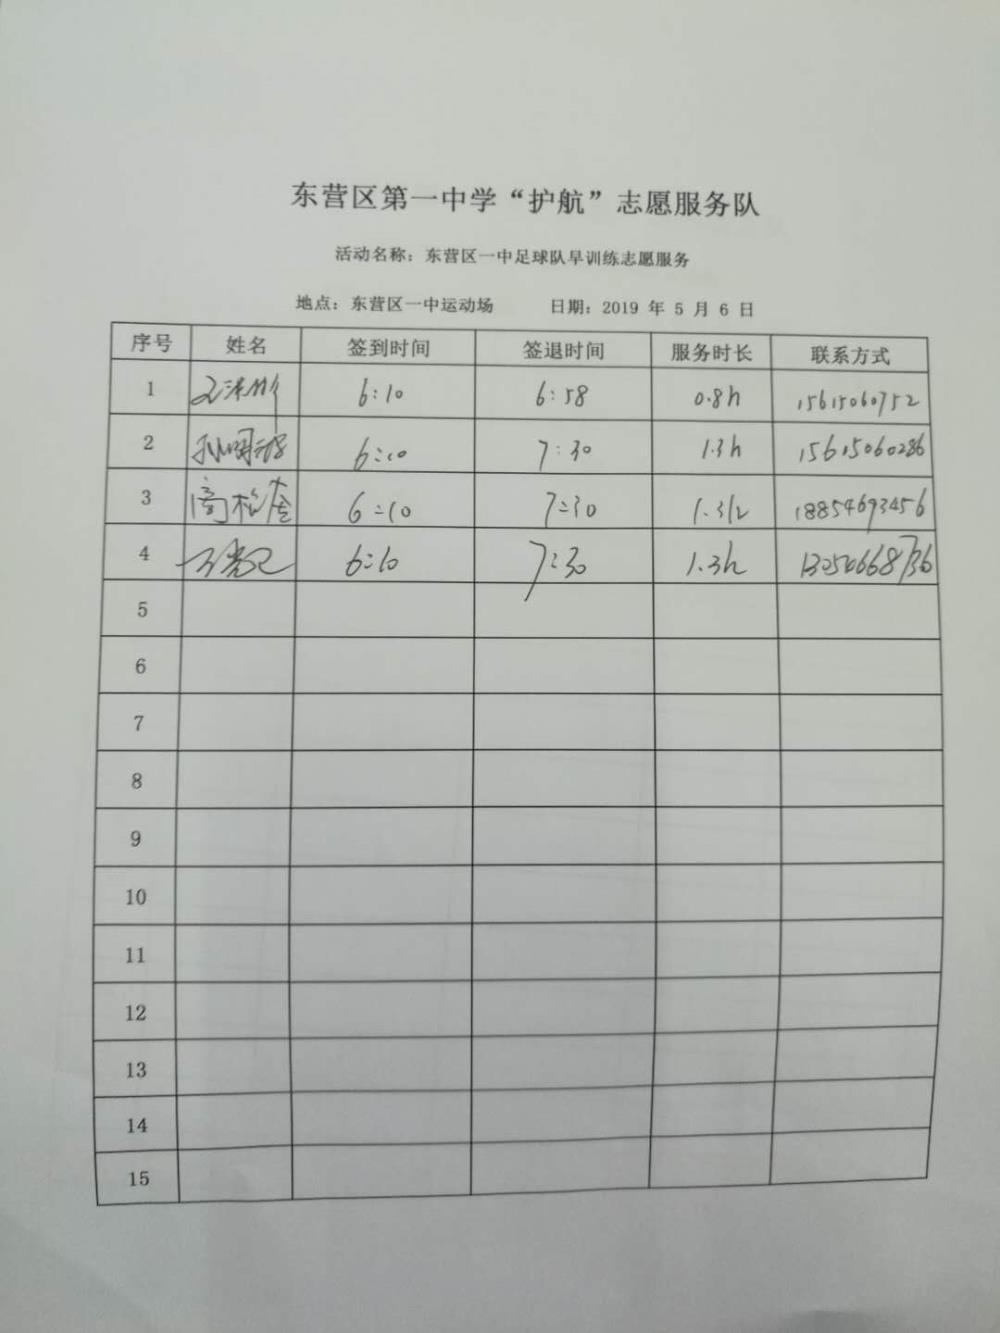 东营区第一中学“护航”志愿服务队
活动名称：东营区一中足球队早训练志愿服务
地点：东营区一中运动场 日期：2019 年 5 月 6 日
序号 姓名 签到时间 签退时间 服务时长 联系方式
1 6:10 6:58 0.8h 15615060752
2 6:10 7:30 1.3h 15615060286
3 6:10 7:30 1.3h 18854693456
4 6:10 7:30 1.3h
5
6
7
8
9
10
11
12
13
14
15